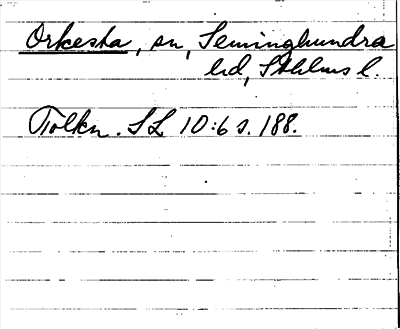 Orkesta, sn, Seminghundra
hd, Sthlms l.
Tolkn. SL 10:6 s. 188.